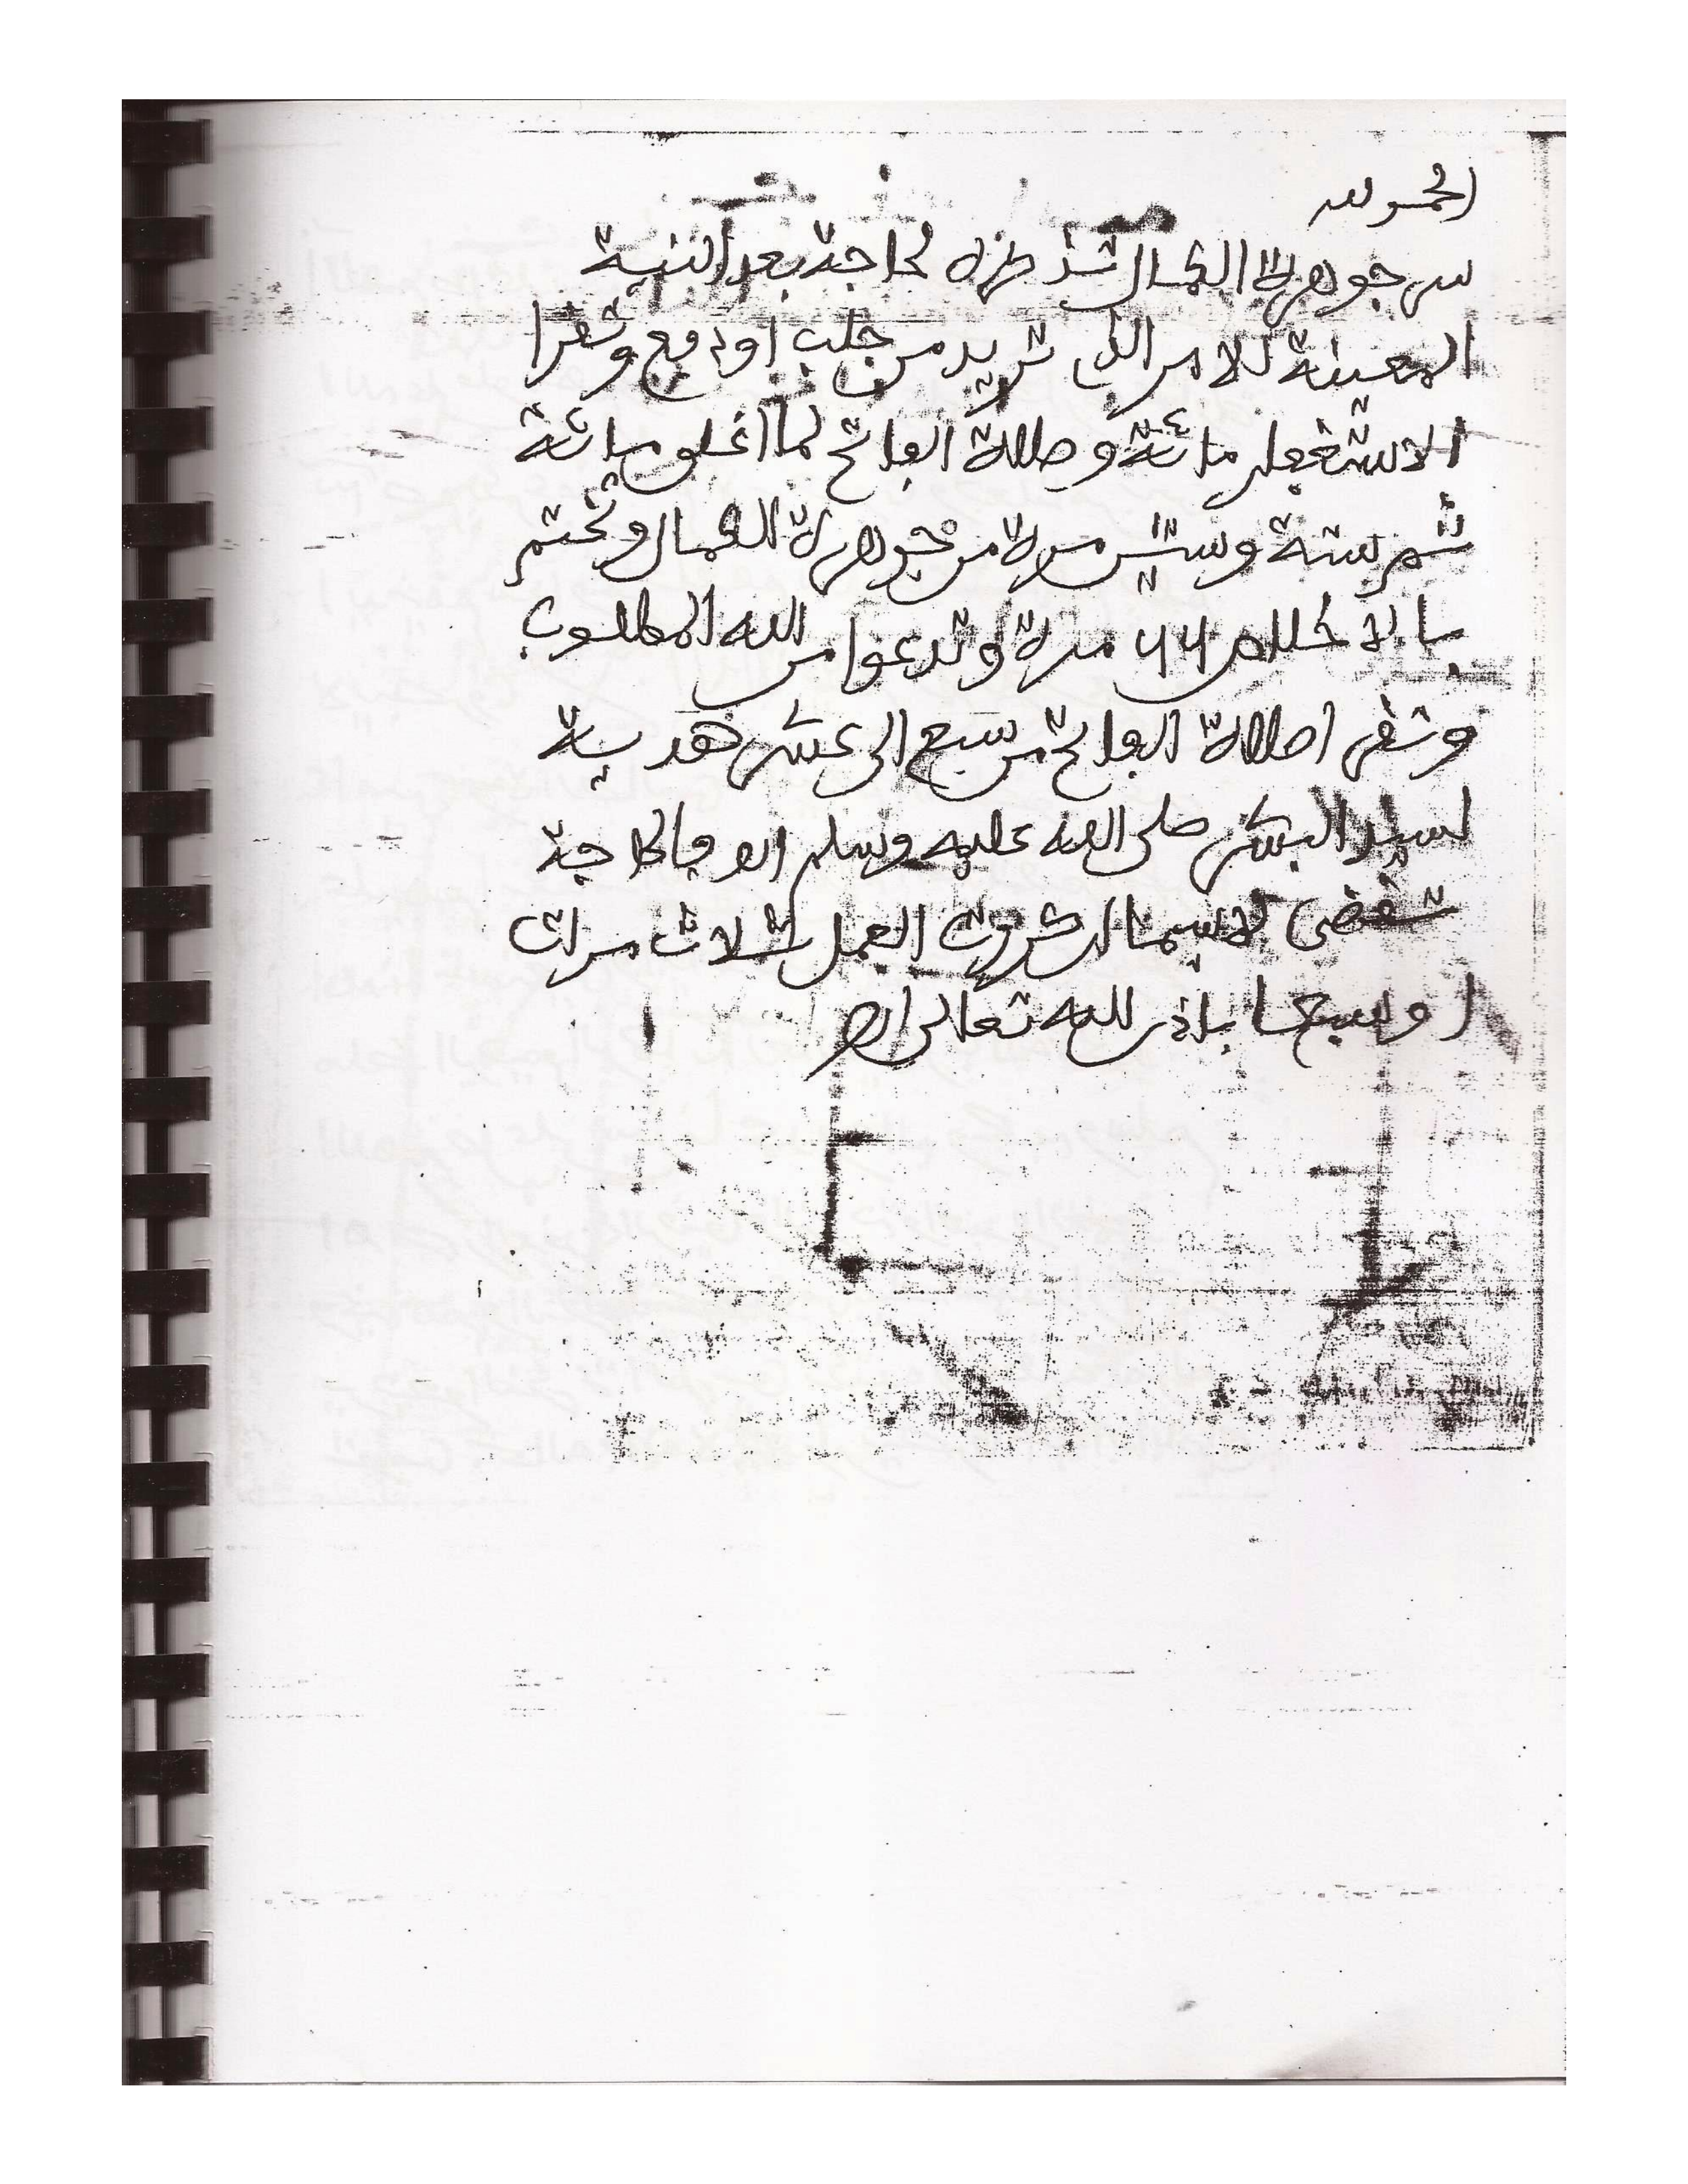 الحمد لله
سر جوهرة الكمال تذكره لحاجة بعد النية
المعينة للامر الذي تريد من جلب او دفع وتقرا
الاستغفار مائة وصلاة الفاتح لما اغلق مائة
ثم ستة وستين مرة من جوهرة الكمال وتختم
بالاخلاص ٦٦ مرة وتدعوا من الله المطلوب
وتقرا صلاة الفاتح من سبع الى عشر هدية
لسيد البشر صلى الله عليه وسلم فالحاجة
تقضى لاسيما ان كررت العمل ثلاث مرات
او سبعا باذن الله تعالى اهـ